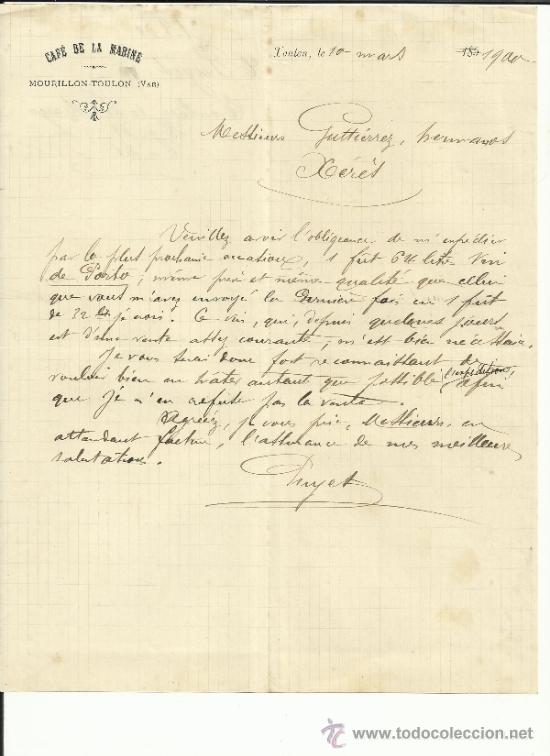 CAFÉ DE LA MARINE
MOURILLON-TOULON (VAR)
Toulon, le 10 mars 1900
Messieurs Guttiérrez, hermanos
Xérès
Veuillez avoir l'obligeance de m'expédier
par la plus prochaine occasion, 1 fût litres Vin
de Porto, même prix et même qualité que celui
que vous m'avez envoyé la dernière fois en 1 fût
de 32 je crois. Ce vin, qui, depuis quelques jours
est d'une vente assez courante, m'est bien nécessaire.
Je vous serai donc fort reconnaissant de
vouloir bien en hâter autant que possible l'expédition, afin
que je n'en refuser pas la vente.
Agréez, je vous prie, Messieurs, en
attendant facture, l'assurance de mes meilleures
salutations.
Puyet
© www.todocoleccion.net